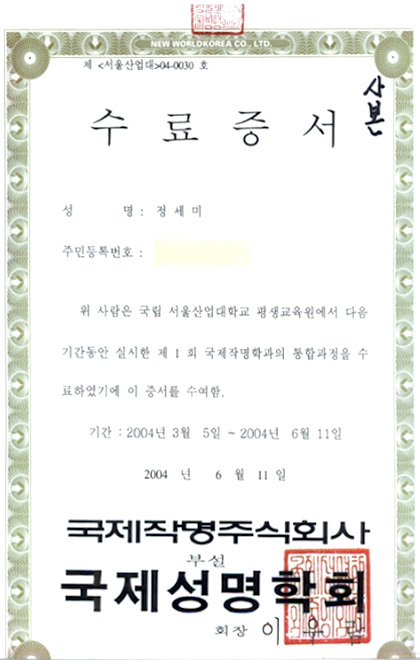 NEW WORLDKOREA CO., LTD.
제 <서울산업대>04-0030 호
사본
수료증서
성 명 : 정세미
주민등록번호 :
위 사람은 국립 서울산업대학교 평생교육원에서 다음
기간동안 실시한 제 1 회 국제작명학과의 통합과정을 수
료하였기에 이 증서를 수여함.
기간 : 2004년 3월 5일 ~ 2004년 6월 11일
2004 년 6 월 11 일
국제작명주식회사
부설
국제성명학회
회장 이 우 람